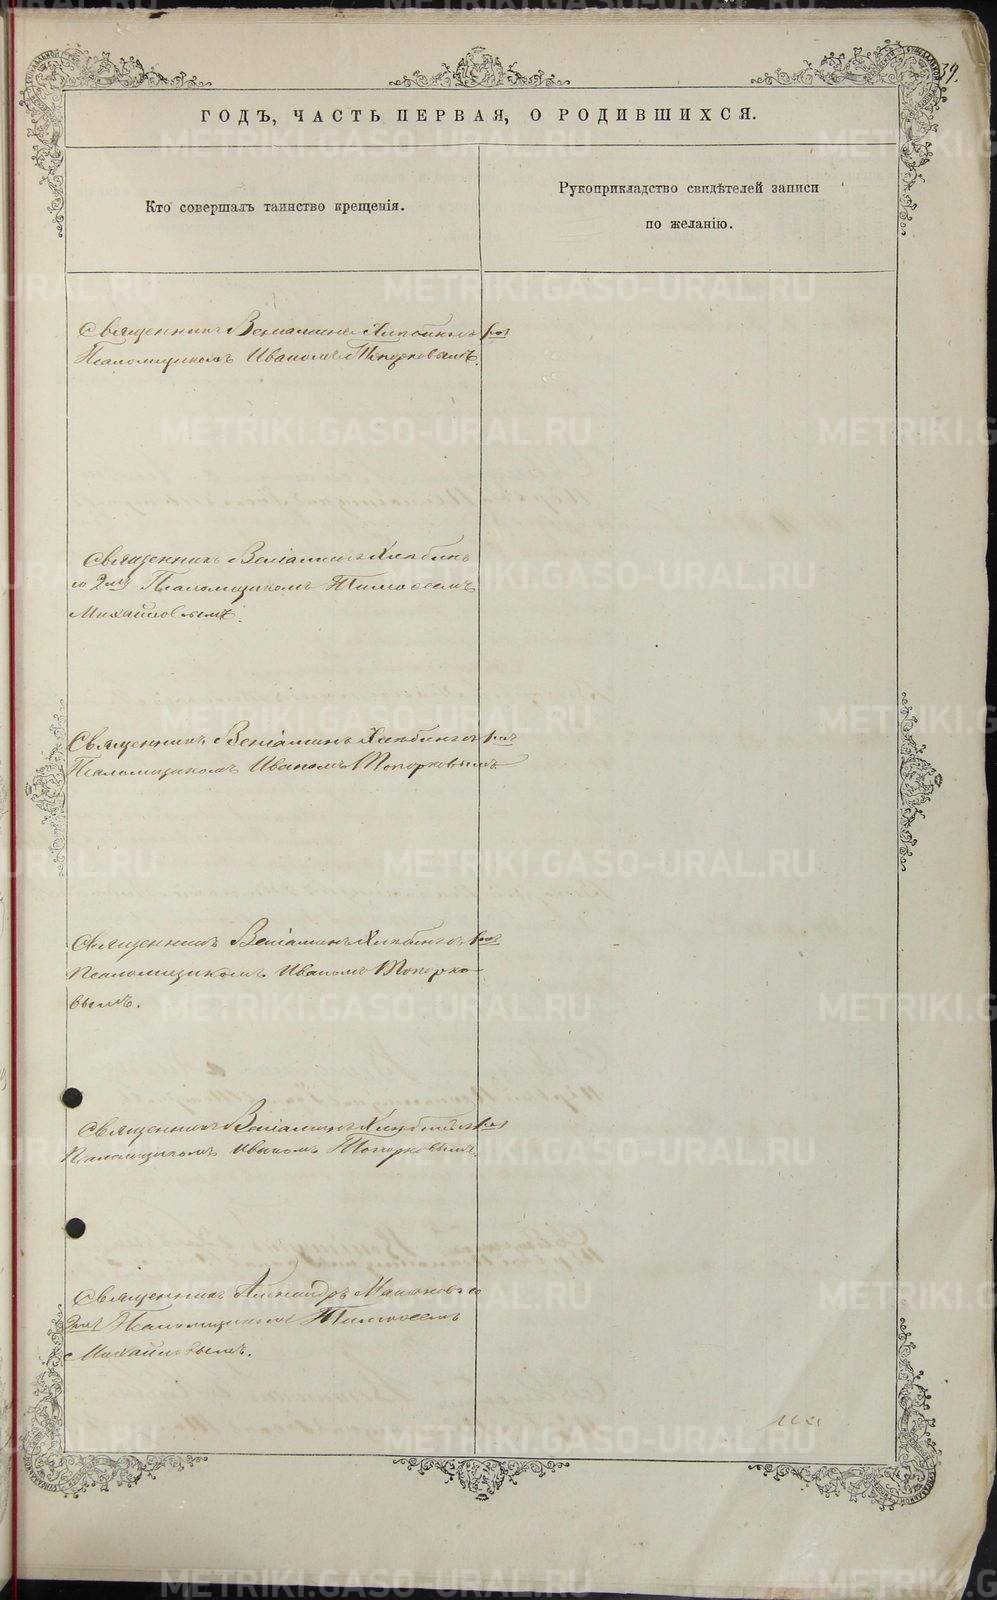 39.
ГОДЪ, ЧАСТЬ ПЕРВАЯ, О РОДИВШИХСЯ.
Кто совершалъ таинство крещенія.
Рукоприкладство свидѣтелей записи
по желанію.
Священникъ Веніаминъ Хлѣбинъ съ 1мъ
Псаломщикомъ Иваномъ Топорковымъ.
Священникъ Веніаминъ Хлѣбинъ
со 2мъ Псаломщикомъ Тимоѳеемъ
Михайловымъ.
Священникъ Веніаминъ Хлѣбинъ съ 1мъ
Псаломщикомъ Иваномъ Топорковымъ.
Священникъ Веніаминъ Хлѣбинъ съ 1мъ
Псаломщикомъ Иваномъ Топорко
вымъ.
Священникъ Веніаминъ Хлѣбинъ съ 1мъ
Псаломщикомъ Иваномъ Топорковымъ.
Священникъ Александръ со
2мъ Псаломщикомъ Тимоѳеемъ
Михайловымъ.
METRIKI.GASO-URAL.RU